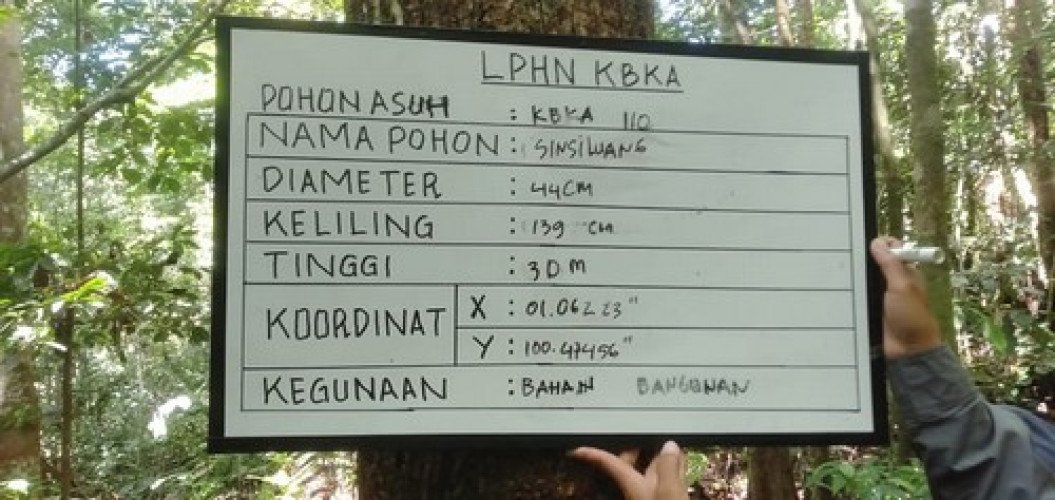 LPHN KBKA
POHON ASUH : KBKA 110
NAMA POHON : SINSILUANG
DIAMETER : 44CM
KELILING : 139 CM
TINGGI : 30 M
KOORDINAT X : 01.06223"
Y : 100.47456"
KEGUNAAN : BAHAN BANGUNAN